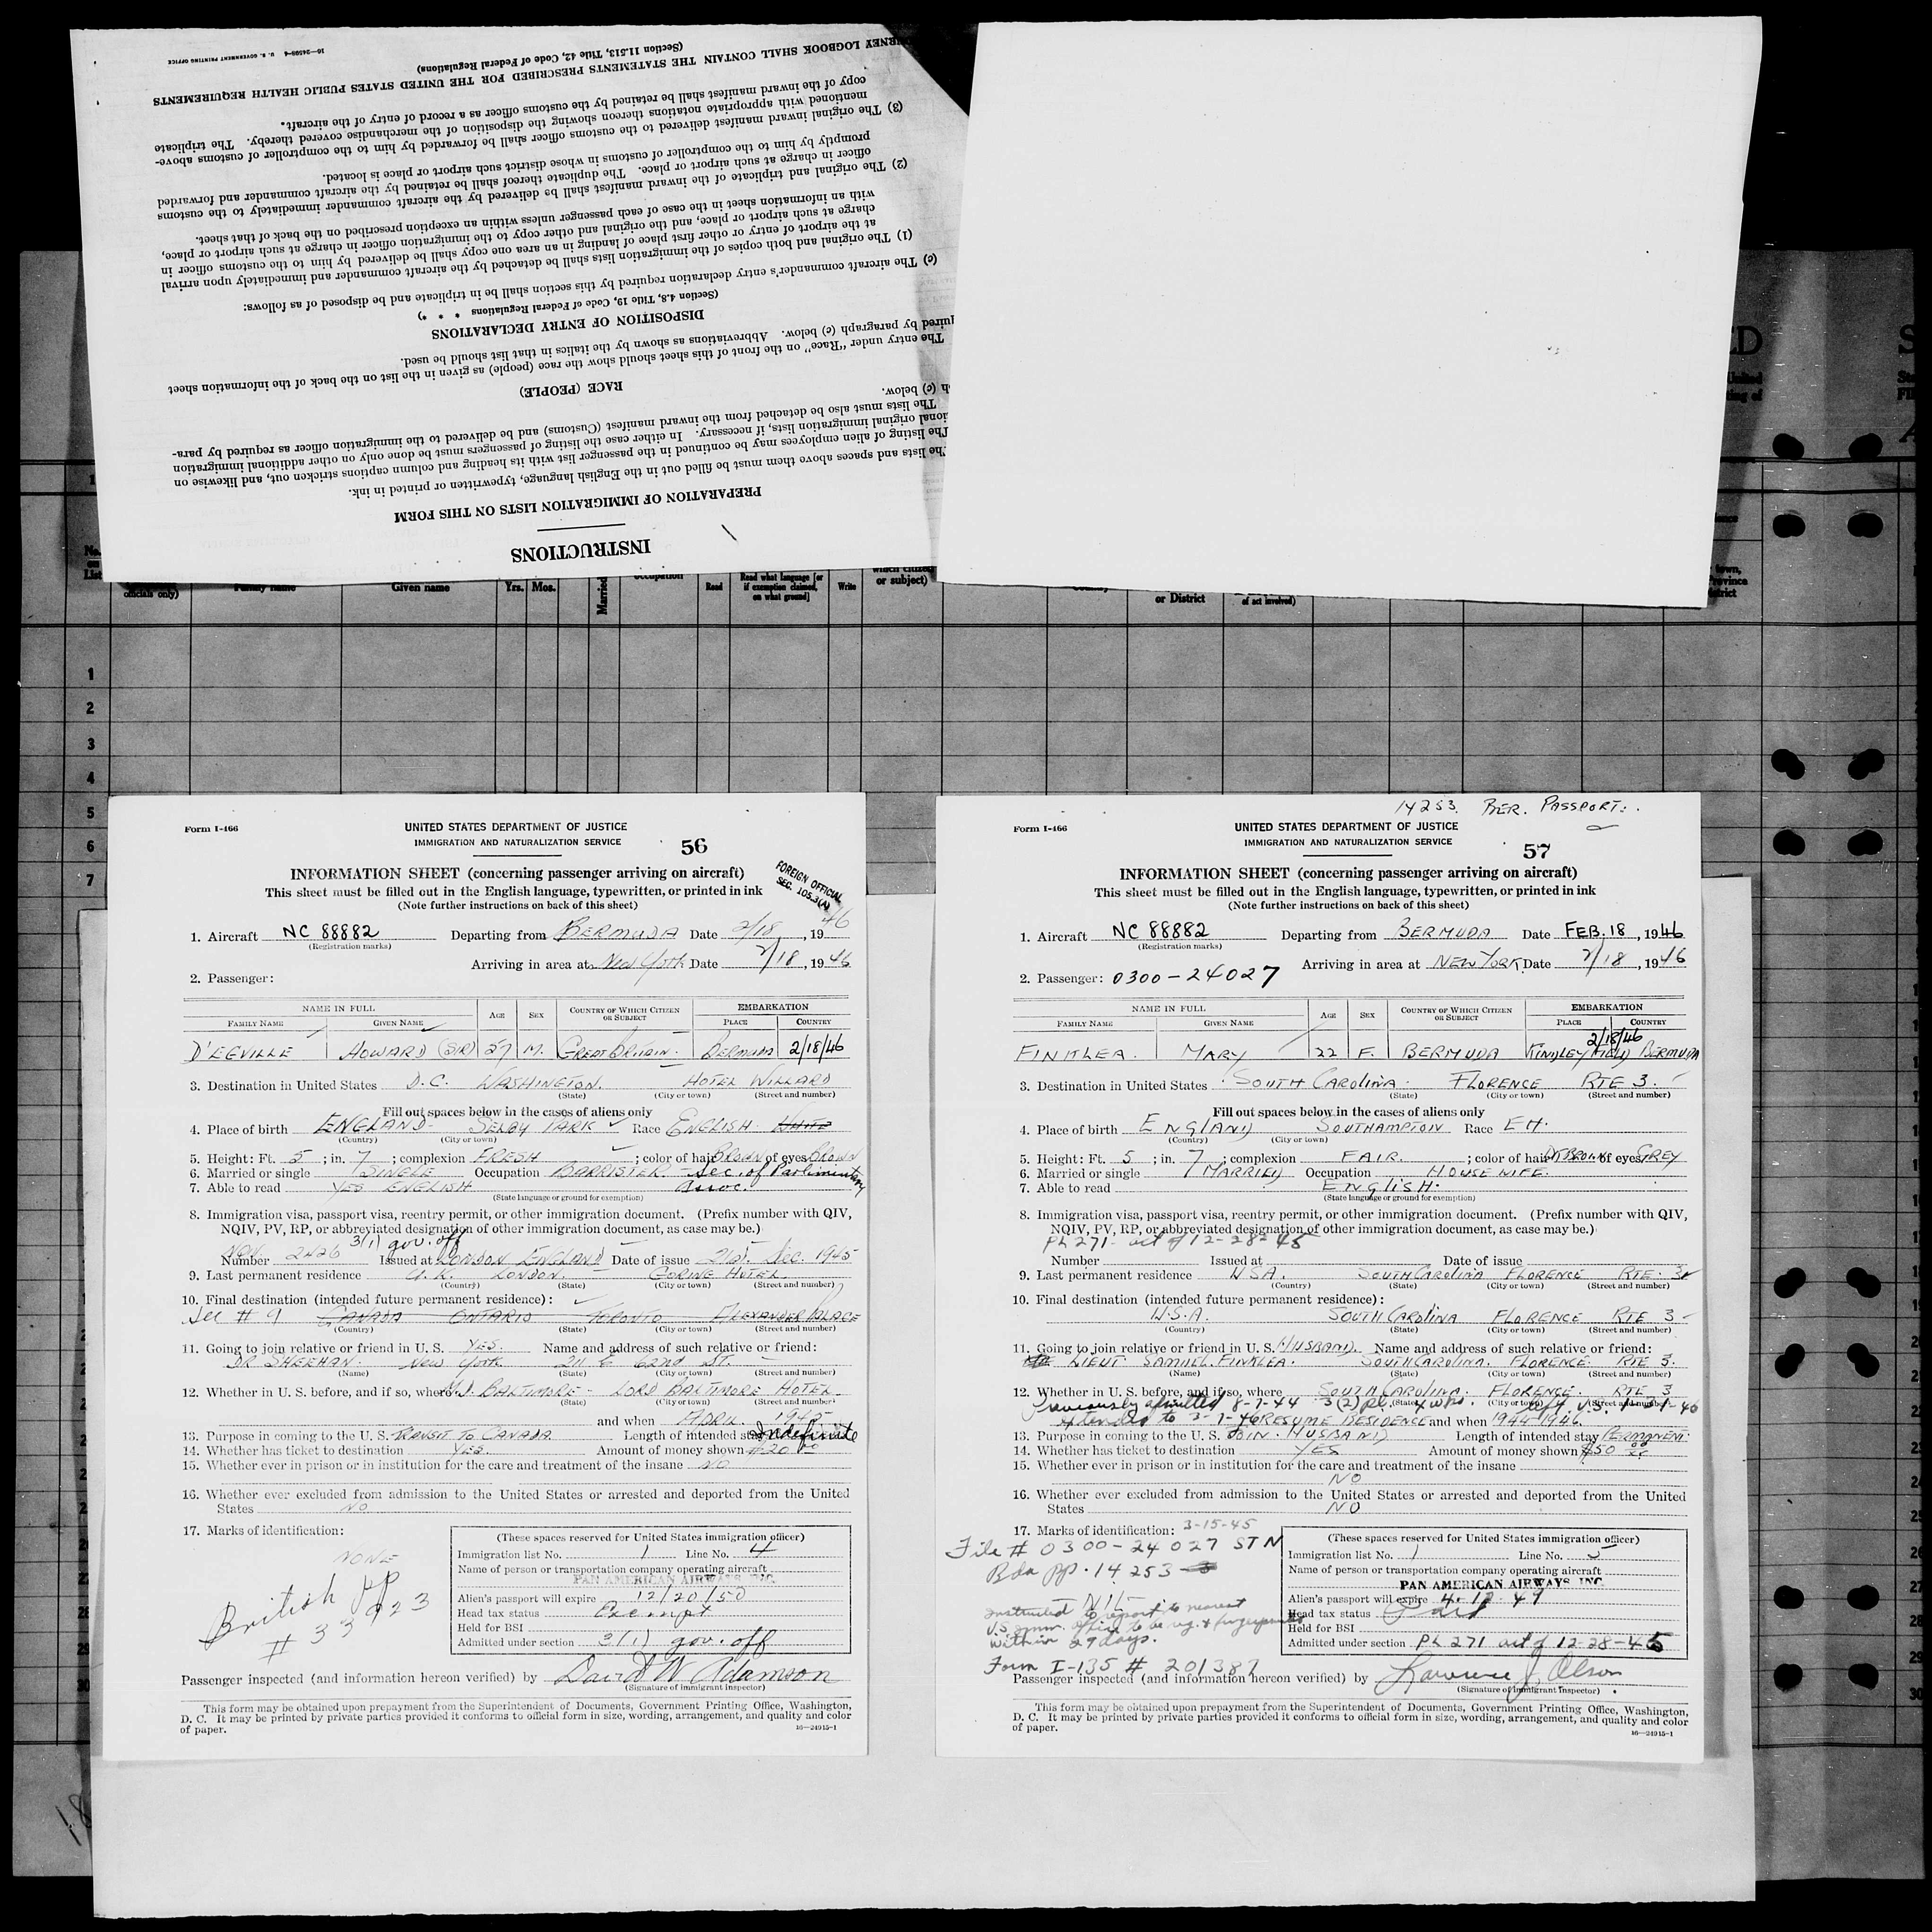 INSTRUCTIONS
PREPARATION OF IMMIGRATION LISTS ON THIS FORM
The lists and spaces above them must be filled out in the English language, typewritten or printed in ink.
The listing of alien employees may be continued in the passenger list with its heading and column captions stricken out, and likewise on
original immigration lists, if necessary. In either case the listing of passengers must be done only on other additional immigration
The lists must also be detached from the inward manifest (Customs) and be delivered to the immigration officer as required by para-
(c) below.
RACE (PEOPLE)
The entry under "Race" on the front of this sheet should show the race (people) as given in the list on the back of the information sheet
by paragraph (c) below. Abbreviations as shown by the italics in that list should be used.
DISPOSITION OF ENTRY DECLARATIONS
(Section 4.8, Title 19, Code of Federal Regulations * * *)
(c) The aircraft commander's entry declaration required by this section shall be in triplicate and be disposed of as follows:
(1) The original and both copies of the immigration lists shall be detached by the aircraft commander and immediately upon arrival
at the airport of entry or other first place of landing in an area one copy shall be delivered by him to the customs officer in
charge at such airport or place, and the original and other copy to the immigration officer in charge at such airport or place,
with an information sheet in the case of each passenger unless within an exception prescribed on the back of that sheet.
(2) The original and triplicate of the inward manifest shall be delivered by the aircraft commander immediately to the customs
officer in charge at such airport or place. The duplicate thereof shall be retained by the aircraft commander and forwarded
promptly by him to the comptroller of customs in whose district such airport or place is located.
(3) The original inward manifest delivered to the customs officer shall be forwarded by him to the comptroller of customs above-
mentioned with appropriate notations thereon showing the disposition of the merchandise covered thereby. The triplicate
copy of the inward manifest shall be retained by the customs officer as a record of entry of the aircraft.
LOGBOOK SHALL CONTAIN THE STATEMENTS PRESCRIBED FOR THE UNITED STATES PUBLIC HEALTH REQUIREMENTS
(Section 11.513, Title 42, Code of Federal Regulations)
16—24508-4 U. S. GOVERNMENT PRINTING OFFICE
Family name Given name Yrs. Mos. Married Read Read what language [or if exemption claimed, on what ground] Write or subject) or District
1
2
3
4
5
6
7
Form I-466
UNITED STATES DEPARTMENT OF JUSTICE
IMMIGRATION AND NATURALIZATION SERVICE
56
INFORMATION SHEET (concerning passenger arriving on aircraft)
FOREIGN OFFICIAL
SEC. 105.3(A)
This sheet must be filled out in the English language, typewritten, or printed in ink
(Note further instructions on back of this sheet)
1. Aircraft NC 88882 Departing from BERMUDA Date 2/18, 1946
(Registration marks)
Arriving in area at New York Date 2/18, 1946
2. Passenger:
NAME IN FULL AGE SEX COUNTRY OF WHICH CITIZEN OR SUBJECT EMBARKATION
FAMILY NAME GIVEN NAME PLACE COUNTRY
D'EGVILLE HOWARD (SIR) 27 M. GREAT BRITAIN. BERMUDA 2/18/46
3. Destination in United States D.C. WASHINGTON. HOTEL WILLARD
(State) (City or town) (Street and number)
Fill out spaces below in the cases of aliens only
4. Place of birth ENGLAND - SELBY PARK Race ENGLISH WHITE
(Country) (City or town)
5. Height: Ft. 5; in. 7; complexion FRESH; color of hair BROWN of eyes BROWN
6. Married or single SINGLE Occupation BARRISTER - Sec. of Parlimentary
7. Able to read YES ENGLISH Assoc.
(State language or ground for exemption)
8. Immigration visa, passport visa, reentry permit, or other immigration document. (Prefix number with QIV,
NQIV, PV, RP, or abbreviated designation of other immigration document, as case may be.)
3(1) gov. off
Number 2426 Issued at LONDON ENGLAND Date of issue 21st Dec. 1945
9. Last permanent residence U.K. LONDON. GORING HOTEL
(Country) (State) (City or town) (Street and number)
10. Final destination (intended future permanent residence):
See # 9 CANADA ONTARIO TORONTO ALEXANDER PALACE
(Country) (State) (City or town) (Street and number)
11. Going to join relative or friend in U. S. YES. Name and address of such relative or friend:
DR SHEEHAN. New York 211 E 62nd St. -
(Name) (State) (City or town) (Street and number)
12. Whether in U. S. before, and if so, where BALTIMORE - LORD BALTIMORE HOTEL
(State) (City or town) (Street and number)
and when APRIL. 1945
13. Purpose in coming to the U. S. TRANSIT TO CANADA. Length of intended stay Indefinite
14. Whether has ticket to destination YES. Amount of money shown $20.00
15. Whether ever in prison or in institution for the care and treatment of the insane NO
16. Whether ever excluded from admission to the United States or arrested and deported from the United
States NO
17. Marks of identification:
NONE
British PP
# 33923
(These spaces reserved for United States immigration officer)
Immigration list No. 1 Line No. 4
Name of person or transportation company operating aircraft
PAN AMERICAN AIRWAYS INC.
Alien's passport will expire 12/20/50
Head tax status Exempt
Held for BSI
Admitted under section 3(1) gov. off
Passenger inspected (and information hereon verified) by David W Adamson
(Signature of immigrant inspector)
This form may be obtained upon prepayment from the Superintendent of Documents, Government Printing Office, Washington,
D. C. It may be printed by private parties provided it conforms to official form in size, wording, arrangement, and quality and color
of paper.
16—24915-1
14253. BER. PASSPORT.
Form I-466
UNITED STATES DEPARTMENT OF JUSTICE
IMMIGRATION AND NATURALIZATION SERVICE
57
INFORMATION SHEET (concerning passenger arriving on aircraft)
This sheet must be filled out in the English language, typewritten, or printed in ink
(Note further instructions on back of this sheet)
1. Aircraft NC 88882 Departing from BERMUDA Date FEB. 18, 1946
(Registration marks)
Arriving in area at NEW YORK Date 2/18, 1946
2. Passenger: 0300-24027
NAME IN FULL AGE SEX COUNTRY OF WHICH CITIZEN OR SUBJECT EMBARKATION
FAMILY NAME GIVEN NAME PLACE COUNTRY
2/18/46
FINKLEA. MARY 22 F. BERMUDA KINDLEY FIELD BERMUDA
3. Destination in United States SOUTH CAROLINA. FLORENCE RTE 3.
(State) (City or town) (Street and number)
Fill out spaces below in the cases of aliens only
4. Place of birth ENGLAND SOUTHAMPTON Race EH.
(Country) (City or town)
5. Height: Ft. 5; in. 7; complexion FAIR.; color of hair DK BROWN of eyes GREY
6. Married or single MARRIED Occupation HOUSE WIFE.
7. Able to read ENGLISH.
(State language or ground for exemption)
8. Immigration visa, passport visa, reentry permit, or other immigration document. (Prefix number with QIV,
NQIV, PV, RP, or abbreviated designation of other immigration document, as case may be.)
PL 271 - act of 12-28-45
Number Issued at Date of issue
9. Last permanent residence USA. SOUTH CAROLINA FLORENCE RTE. 3
(Country) (State) (City or town) (Street and number)
10. Final destination (intended future permanent residence):
U.S.A. SOUTH CAROLINA FLORENCE RTE 3 -
(Country) (State) (City or town) (Street and number)
11. Going to join relative or friend in U. S. HUSBAND. Name and address of such relative or friend:
LIEUT SAMUEL. FINKLEA. SOUTH CAROLINA. FLORENCE. RTE 3.
(Name) (State) (City or town) (Street and number)
12. Whether in U. S. before, and if so, where SOUTH CAROLINA. FLORENCE. RTE 3
(State) (City or town) (Street and number)
Previously admitted 8-7-44 3(2) left U.S.
extended to 3-7-46 RESUME RESIDENCE and when 1944-1946.
13. Purpose in coming to the U. S. JOIN. HUSBAND Length of intended stay PERMANENT.
14. Whether has ticket to destination YES Amount of money shown $50 00
15. Whether ever in prison or in institution for the care and treatment of the insane
NO
16. Whether ever excluded from admission to the United States or arrested and deported from the United
States NO
17. Marks of identification: 3-15-45
File # 0300-24027 STN
Bda pp. 14253
NIL
instructed to report to nearest
U.S. Imm. office to be reg. & fingerprinted
within 29 days.
Form I-135 # 201387
(These spaces reserved for United States immigration officer)
Immigration list No. 1 Line No. 5
Name of person or transportation company operating aircraft
PAN AMERICAN AIRWAYS, INC.
Alien's passport will expire 4-12-49
Head tax status Paid
Held for BSI
Admitted under section PL 271 act of 12-28-45
Passenger inspected (and information hereon verified) by Lawrence J. Olson
(Signature of immigrant inspector)
This form may be obtained upon prepayment from the Superintendent of Documents, Government Printing Office, Washington,
D. C. It may be printed by private parties provided it conforms to official form in size, wording, arrangement, and quality and color
of paper.
16—24915-1